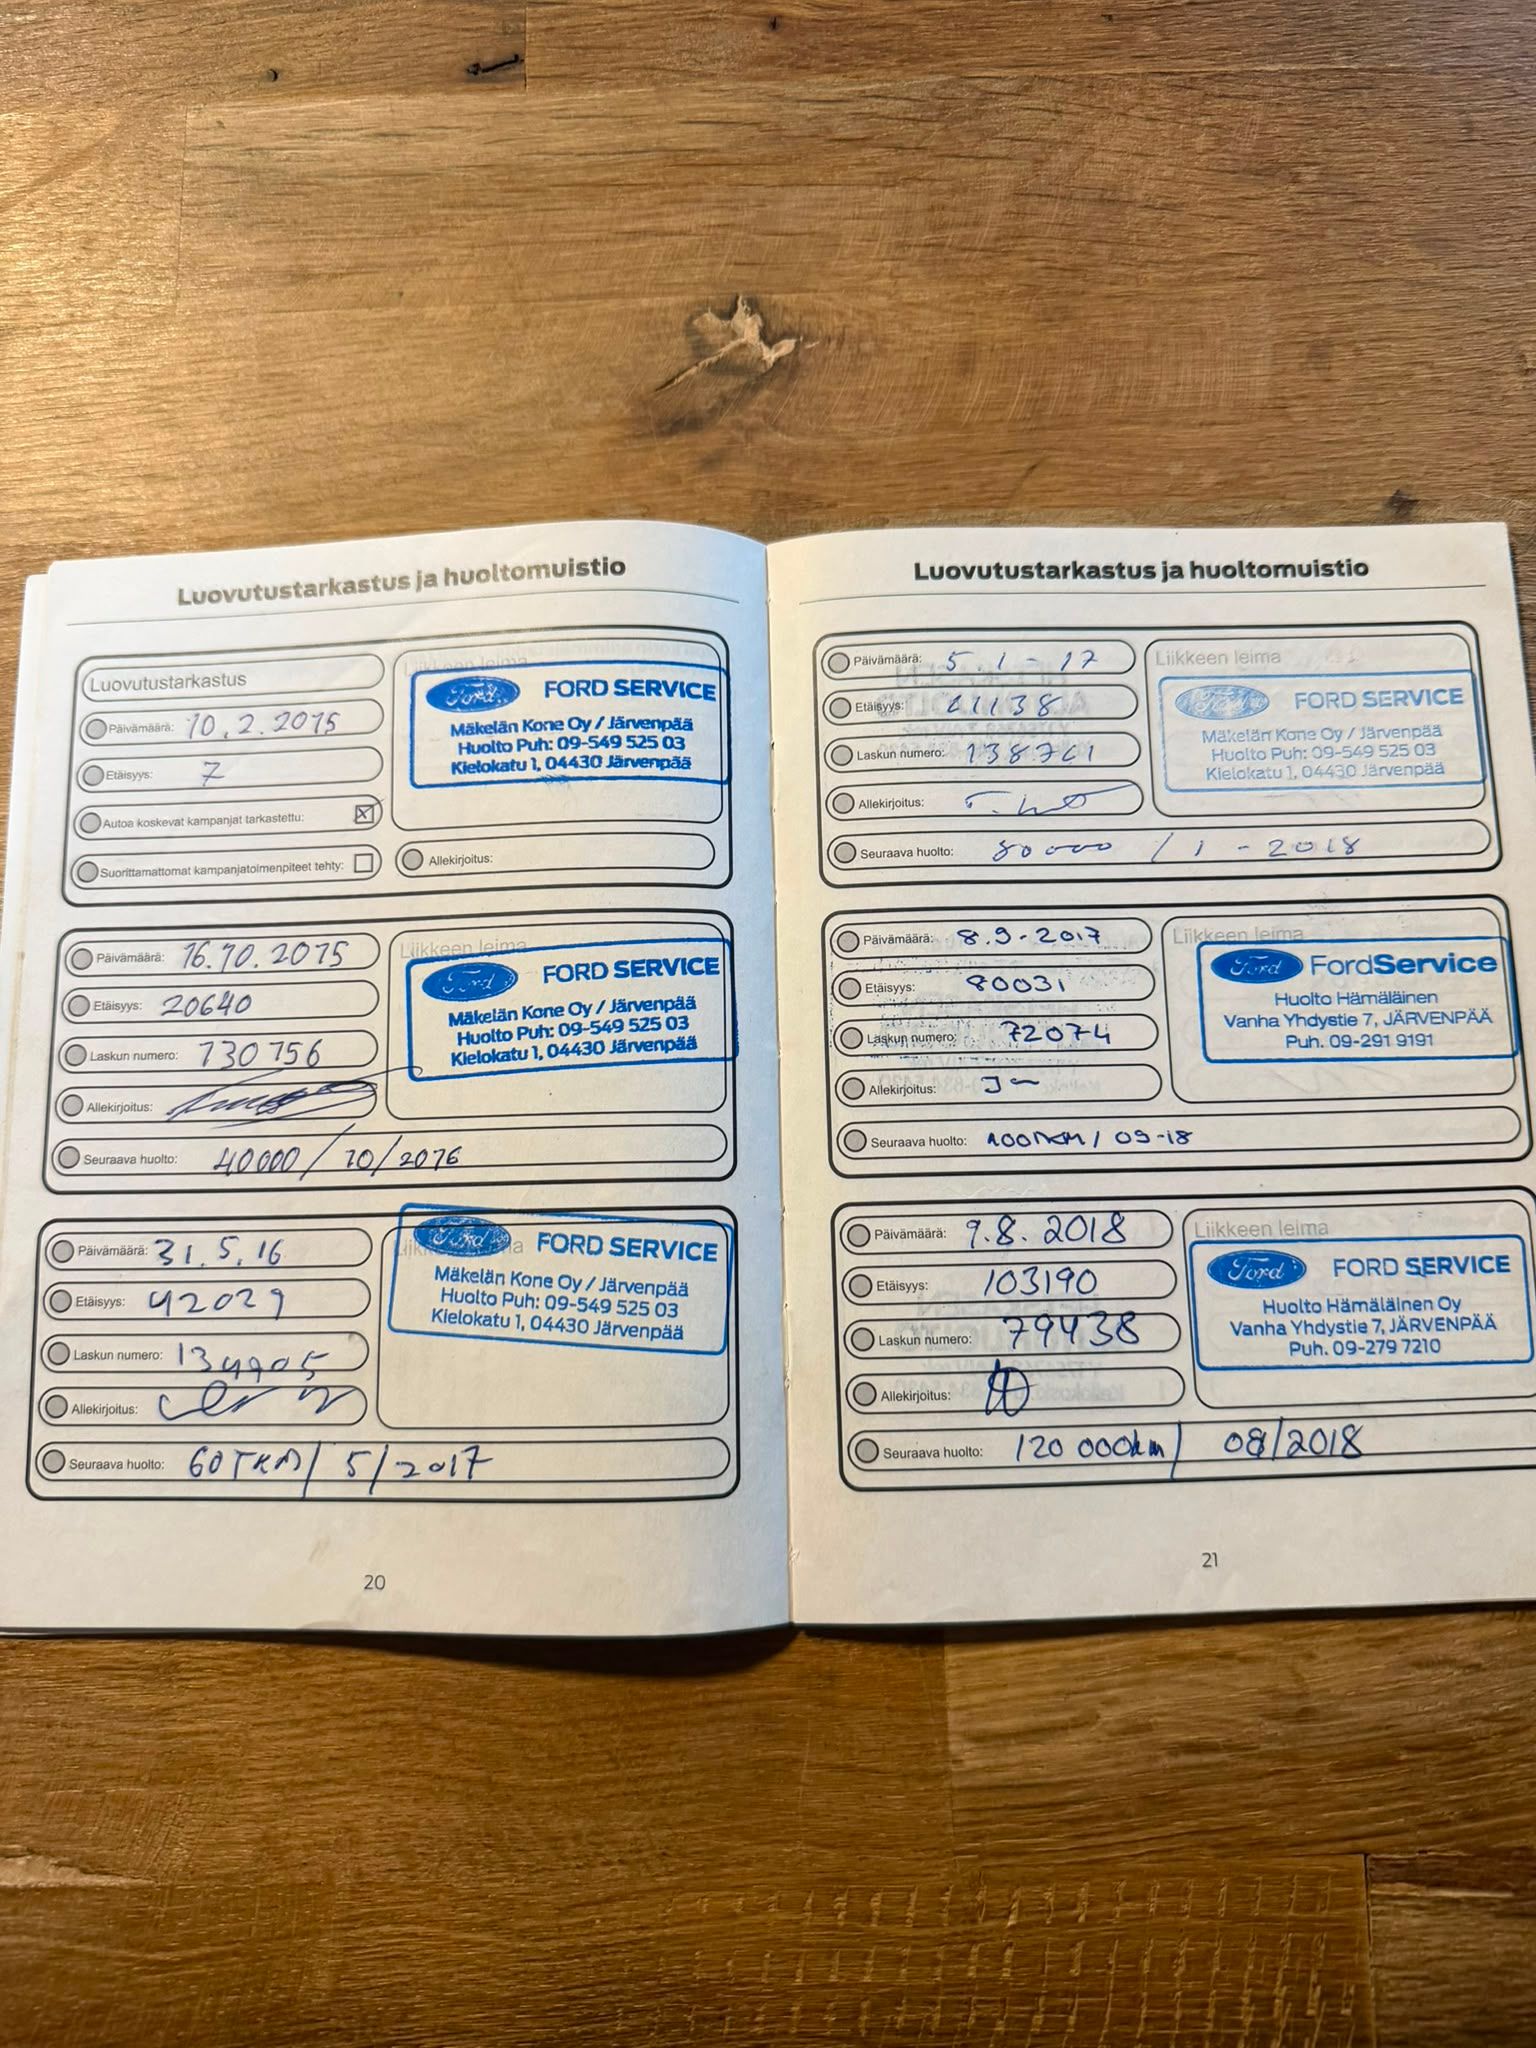 Luovutustarkastus ja huoltomuistio
Luovutustarkastus
Päivämäärä: 10.2.2015
Etäisyys: 7
Autoa koskevat kampanjat tarkastettu:
Suorittamattomat kampanjatoimenpiteet tehty:
Liikkeen leima
Ford FORD SERVICE
Mäkelän Kone Oy / Järvenpää
Huolto Puh: 09-549 525 03
Kielokatu 1, 04430 Järvenpää
Allekirjoitus:
Päivämäärä: 16.10.2015
Etäisyys: 20640
Laskun numero: 130756
Allekirjoitus:
Seuraava huolto: 40000/10/2016
Liikkeen leima
Ford FORD SERVICE
Mäkelän Kone Oy / Järvenpää
Huolto Puh: 09-549 525 03
Kielokatu 1, 04430 Järvenpää
Päivämäärä: 31.5.16
Etäisyys: 42029
Laskun numero: 134905
Allekirjoitus:
Seuraava huolto: 60TKM/ 5/2017
Liikkeen leima
Ford FORD SERVICE
Mäkelän Kone Oy / Järvenpää
Huolto Puh: 09-549 525 03
Kielokatu 1, 04430 Järvenpää
20
Luovutustarkastus ja huoltomuistio
Päivämäärä: 5.1-17
Etäisyys:
Laskun numero:
Allekirjoitus:
Seuraava huolto: 80000 / 1 - 2018
Liikkeen leima
Ford FORD SERVICE
Mäkelän Kone Oy / Järvenpää
Huolto Puh: 09-549 525 03
Kielokatu 1, 04430 Järvenpää
Päivämäärä: 8.9-2017
Etäisyys: 80031
Laskun numero: 72074
Allekirjoitus:
Seuraava huolto: 100TKM/ 09-18
Liikkeen leima
Ford FordService
Huolto Hämäläinen
Vanha Yhdystie 7, JÄRVENPÄÄ
Puh. 09-291 9191
Päivämäärä: 9.8.2018
Etäisyys: 103190
Laskun numero: 79438
Allekirjoitus:
Seuraava huolto: 120 000km/ 08/2018
Liikkeen leima
Ford FORD SERVICE
Huolto Hämäläinen Oy
Vanha Yhdystie 7, JÄRVENPÄÄ
Puh. 09-279 7210
21